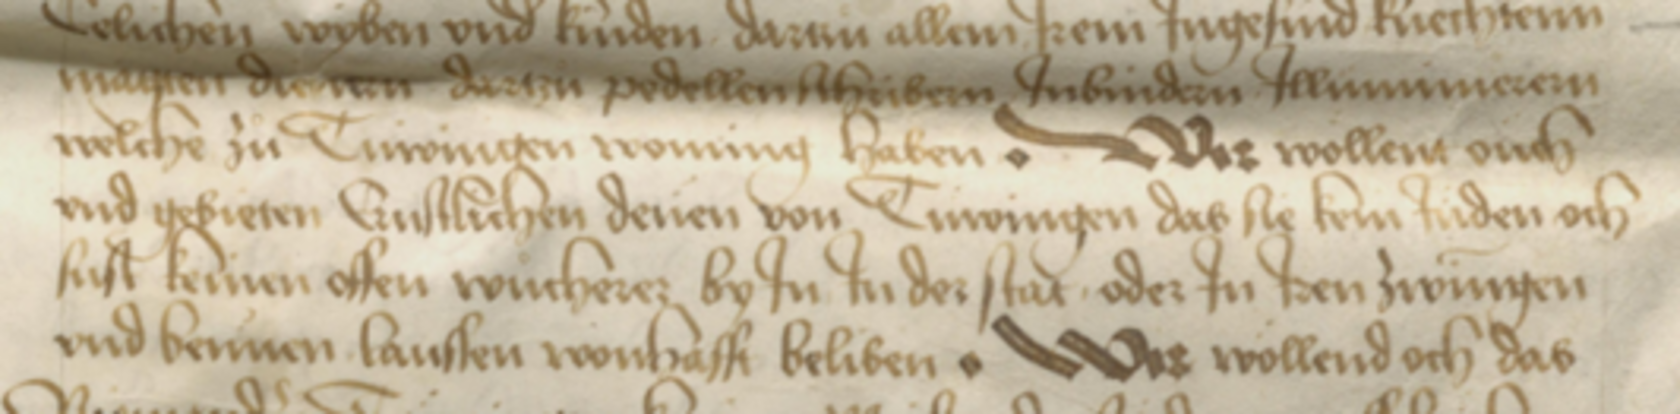 Eelichen wyben vnd kinden dartzu allem irem Ingesind knechtenn
mägten diernen dartzu pedellen schribern Inbindern Illuminierern
welche zů Tüwingen wonung haben • Wir wollent ouch
vnd gebieten Ernstlichen denen von Tüwingen das sie kein Juden och
sust keinen offen wůcherer by In In der stat oder In Iren zwingen
vnd bennen laussen wonhafft beliben • Wir wollend och das